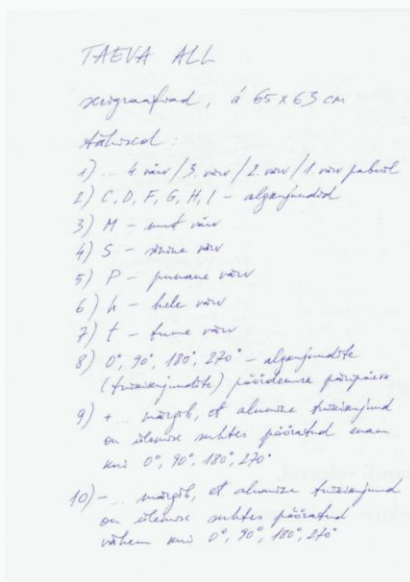 TAEVA ALL
serigraafiad, á 65 x 63 cm
tähised:
1) ... 4 värv / 3. värv / 2. värv / 1. värv paberil
2) C, D, F, G, H, I – algkujundid
3) M – must värv
4) S – sinine värv
5) P – punane värv
6) h – hele värv
7) t – tume värv
8) 0°, 90°, 180°, 270° – algkujundite
(trükikujundite) pöördenurk päripäeva
9) + ... märgib, et alumine trükikujund
on ülemise suhtes pööratud enam
kui 0°, 90°, 180°, 270°
10) – ... märgib, et alumine trükikujund
on ülemise suhtes pööratud
vähem kui 0°, 90°, 180°, 270°